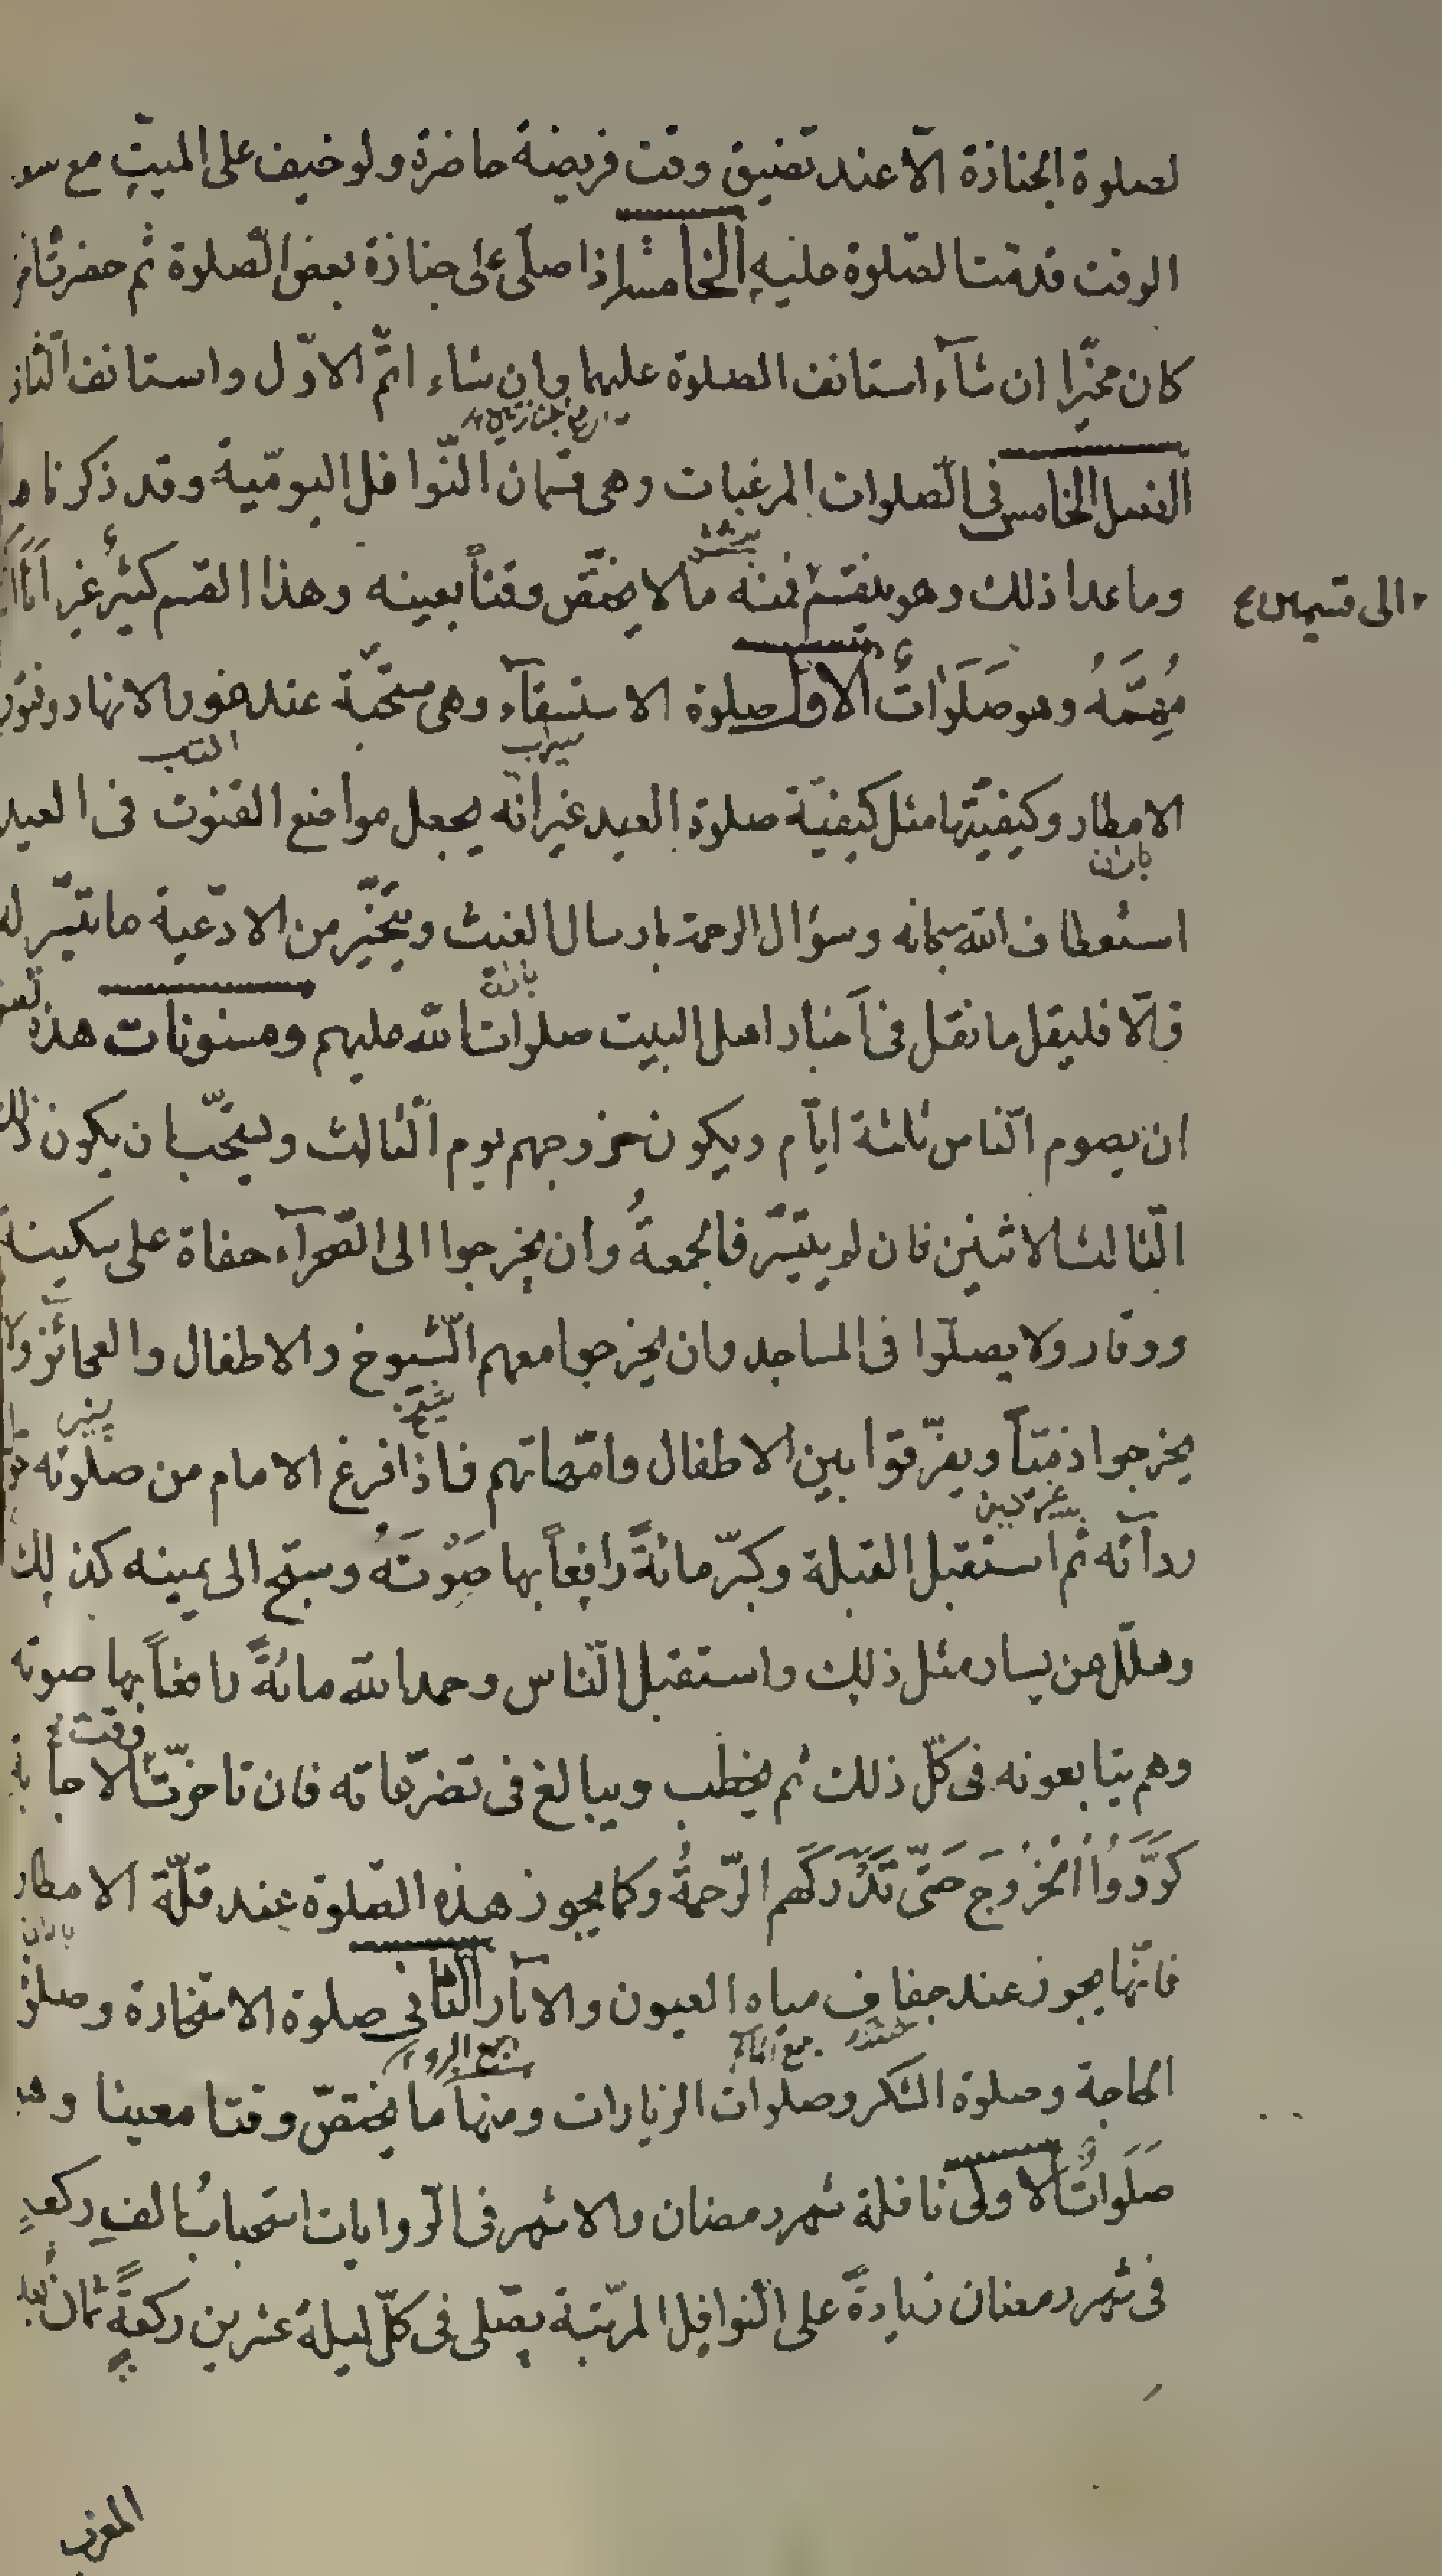 لصلوة الجنازة الّا عند تضيق وقت فريضة حاضرة ولو خيف على الميّت مع سعة
الوقت قدمت الصّلوة عليه الخامسة اذا صلّى على جنازة بعض الصّلوة ثم حضرت اخرى
كان مخيّرا ان شآء استانف الصلوة عليهما وان شاء اتمّ الاوّل واستانف الثّانى
الفصل الخامس فى الصّلوات المرغبات وهى قسمان النّوافل اليوميّة وقد ذكرناها
وما عدا ذلك وهو ينقسم فمنه ما لا يختصّ وقتاً بعينه وهذا القسم كثيرٌ غير انّا
الى قسمين ع
مُهِمَّهُ وهو صَلَوٰاتٌ الاوّل صلوة الاستسقآء وهى مستحبّة عند غور الانهار وفتور
الامطار وكيفيّتها مثل كيفيّة صلوة العيد غير انّه يجعل مواضع القنوت فى العيد
باران
استعطاف الله سبحانه وسؤال الرحمة بارسال الغيث ويتخيّر من الادّعية ما تيسّر له
والّا فليقل ما نقل فى اخبار اهل البيت صلوات الله عليهم ومسنونات هذه
ان يصوم النّاس ثلثة ايّام ويكون خروجهم يوم الثّالث ويستحبّ ان يكون ذلك
الثّالث الاثنين فان لم يتيسّر فالجمعةُ وان يخرجوا الى الصّحرآء حفاة على سكينة
ووقار ولا يصلّوا فى المساجد وان يخرجوا معهم الشّيوخ والاطفال والعجائز ولا
يخرجوا ذميّاً ويفرّقوا بين الاطفال وامّهاتهم فاذا فرغ الامام من صلوته
ردآئه ثم استقبل القبلة وكبّر مائةً رافعاً بها صَوْتَهُ وسبّح الى يمينه كذلك
وهلّل عن يساره مثل ذلك واستقبل النّاس وحمد الله مائةً رافعاً بها صوته
وهم يتابعونه فى كلّ ذلك ثم يخطب ويبالغ فى تضرّعاته فان تاخرّت الاجابة
كَرَّرُوا الْخُرُوجَ حَتّىٰ تَدْرَكَهم الرّحمةُ وكما يجوز هذه الصّلوة عند قلّة الامطار
باران
فانّها يجوز عند جفاف مياه العيون والابآر الثّانى صلوة الاستخارة وصلوة
الحاجة وصلوة الشكر وصلوات الزيارات ومنها ما يختصّ وقتا معينا وهى
صَلَواتٌ الاولى نافلة شهر رمضان والاشهر فى الرّوايات استحباب الف ركعة
فى شهر رمضان زيادةً على النّوافل المرتّبة يصلى فى كلّ ليلة عشرين ركعةً ثمان بعد
المغرب